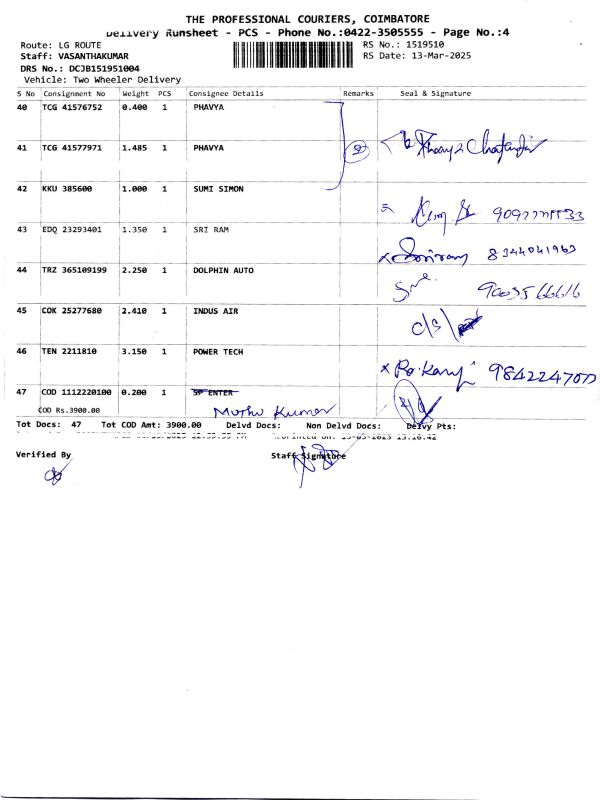 THE PROFESSIONAL COURIERS, COIMBATORE
Delivery Runsheet - PCS - Phone No.:0422-3505555 - Page No.:4
Route: LG ROUTE RS No.: 1519510
Staff: VASANTHAKUMAR RS Date: 13-Mar-2025
DRS No.: DCJB151951004
Vehicle: Two Wheeler Delivery
S No Consignment No Weight PCS Consignee Details Remarks Seal & Signature
40 TCG 41576752 0.400 1 PHAVYA
41 TCG 41577971 1.485 1 PHAVYA 2
42 KKU 385600 1.000 1 SUMI SIMON
43 EDQ 23293401 1.350 1 SRI RAM
8344041963
44 TRZ 365109199 2.250 1 DOLPHIN AUTO
9003566616
45 COK 25277680 2.410 1 INDUS AIR
c/s
46 TEN 2211810 3.150 1 POWER TECH
47 COD 1112220100 0.200 1 SP ENTER
COD Rs.3900.00 Muthu Kumar
Tot Docs: 47 Tot COD Amt: 3900.00 Delvd Docs: Non Delvd Docs: Delvy Pts:
Verified By Staff Signature